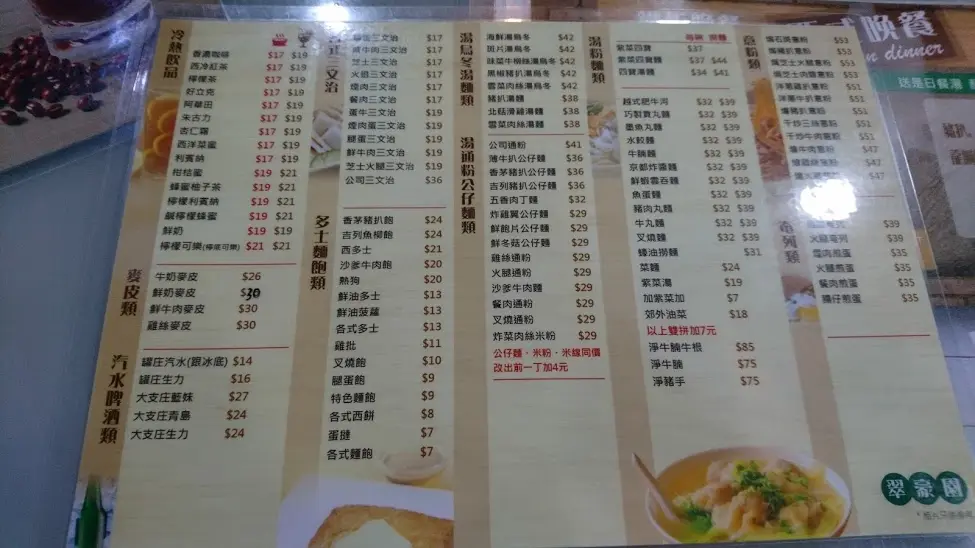 冷熱飲品
香濃咖啡 $17 $19
西冷紅茶 $17 $19
檸檬茶 $17 $19
好立克 $17 $19
阿華田 $17 $19
朱古力 $17 $19
杏仁霜 $17 $19
西洋菜蜜 $17 $19
利賓納 $17 $19
柑桔蜜 $19 $21
蜂蜜柚子茶 $19 $21
檸檬利賓納 $19 $21
鹹檸檬蜂蜜 $19 $21
鮮奶 $19 $21
檸檬可樂(檸底可樂) $21 $21
麥皮類
牛奶麥皮 $26
鮮奶麥皮 30
鮮牛肉麥皮 $30
雞絲麥皮 $30
汽水啤酒類
罐庄汽水(跟冰底) $14
罐庄生力 $16
大支庄藍妹 $27
大支庄青島 $24
大支庄生力 $24
三文治
三文治 $17
牛肉三文治 $17
芝士三文治 $17
火腿三文治 $17
煙肉三文治 $17
餐肉三文治 $17
蛋牛三文治 $19
煙肉蛋三文治 $19
腿蛋三文治 $19
鮮牛肉三文治 $19
芝士火腿三文治 $19
公司三文治 $36
多士麵飽類
香茅豬扒飽 $24
吉列魚柳飽 $24
西多士 $21
沙爹牛肉飽 $20
熱狗 $20
鮮油多士 $13
鮮油菠蘿 $13
各式多士 $13
雞批 $11
叉燒飽 $10
腿蛋飽 $9
特色麵飽 $9
各式西餅 $8
蛋撻 $7
各式麵飽 $7
湯烏冬湯麵類
海鮮湯烏冬 $42
斑片湯烏冬 $42
味菜牛柳絲湯烏冬 $42
黑椒豬扒湯烏冬 $42
雪菜肉絲湯烏冬 $42
豬扒湯麵 $38
北菇滑雞湯麵 $38
雪菜肉絲湯麵 $38
湯通粉公仔麵類
公司通粉 $41
薄牛扒公仔麵 $36
香茅豬扒公仔麵 $36
吉列豬扒公仔麵 $36
五香肉丁麵 $32
炸雞翼公仔麵 $29
鮮鮑片公仔麵 $29
鮮冬菇公仔麵 $29
雞絲通粉 $29
火腿通粉 $29
沙爹牛肉麵 $29
餐肉通粉 $29
叉燒通粉 $29
炸菜肉絲米粉 $29
公仔麵・米粉・米線同價
改出前一丁加4元
湯粉麵類
紫菜四寶 $37
紫菜四寶麵 $37 $44
四寶湯麵 $34 $41
越式肥牛河 $32 $39
巧製貢丸麵 $32 $39
墨魚丸麵 $32 $39
水餃麵 $32 $39
牛腩麵 $32 $39
京都炸醬麵 $32 $39
鮮蝦雲吞麵 $32 $39
魚蛋麵 $32 $39
豬肉丸麵 $32 $39
牛丸麵 $32 $39
叉燒麵 $32 $39
蠔油撈麵 $31
菜麵 $24
紫菜湯 $19
加紫菜加 $7
郊外油菜 $18
以上雙拼加7元
淨牛腩牛根 $85
淨牛腩 $75
淨豬手 $75
意粉類
$53
$53
芝士火腿意粉 $53
芝士肉醬意粉 $53
洋蔥雞扒意粉 $51
洋蔥牛扒意粉 $51
豬扒意粉 $51
干炒三絲意粉 $51
干炒牛肉意粉 $51
牛肉意粉 $47
$47
$47
火腿奄列 $39
煙肉煎蛋 $35
火腿煎蛋 $35
餐肉煎蛋 $35
腸仔煎蛋 $35
晚餐
dinner
送是日餐湯
翠豪園